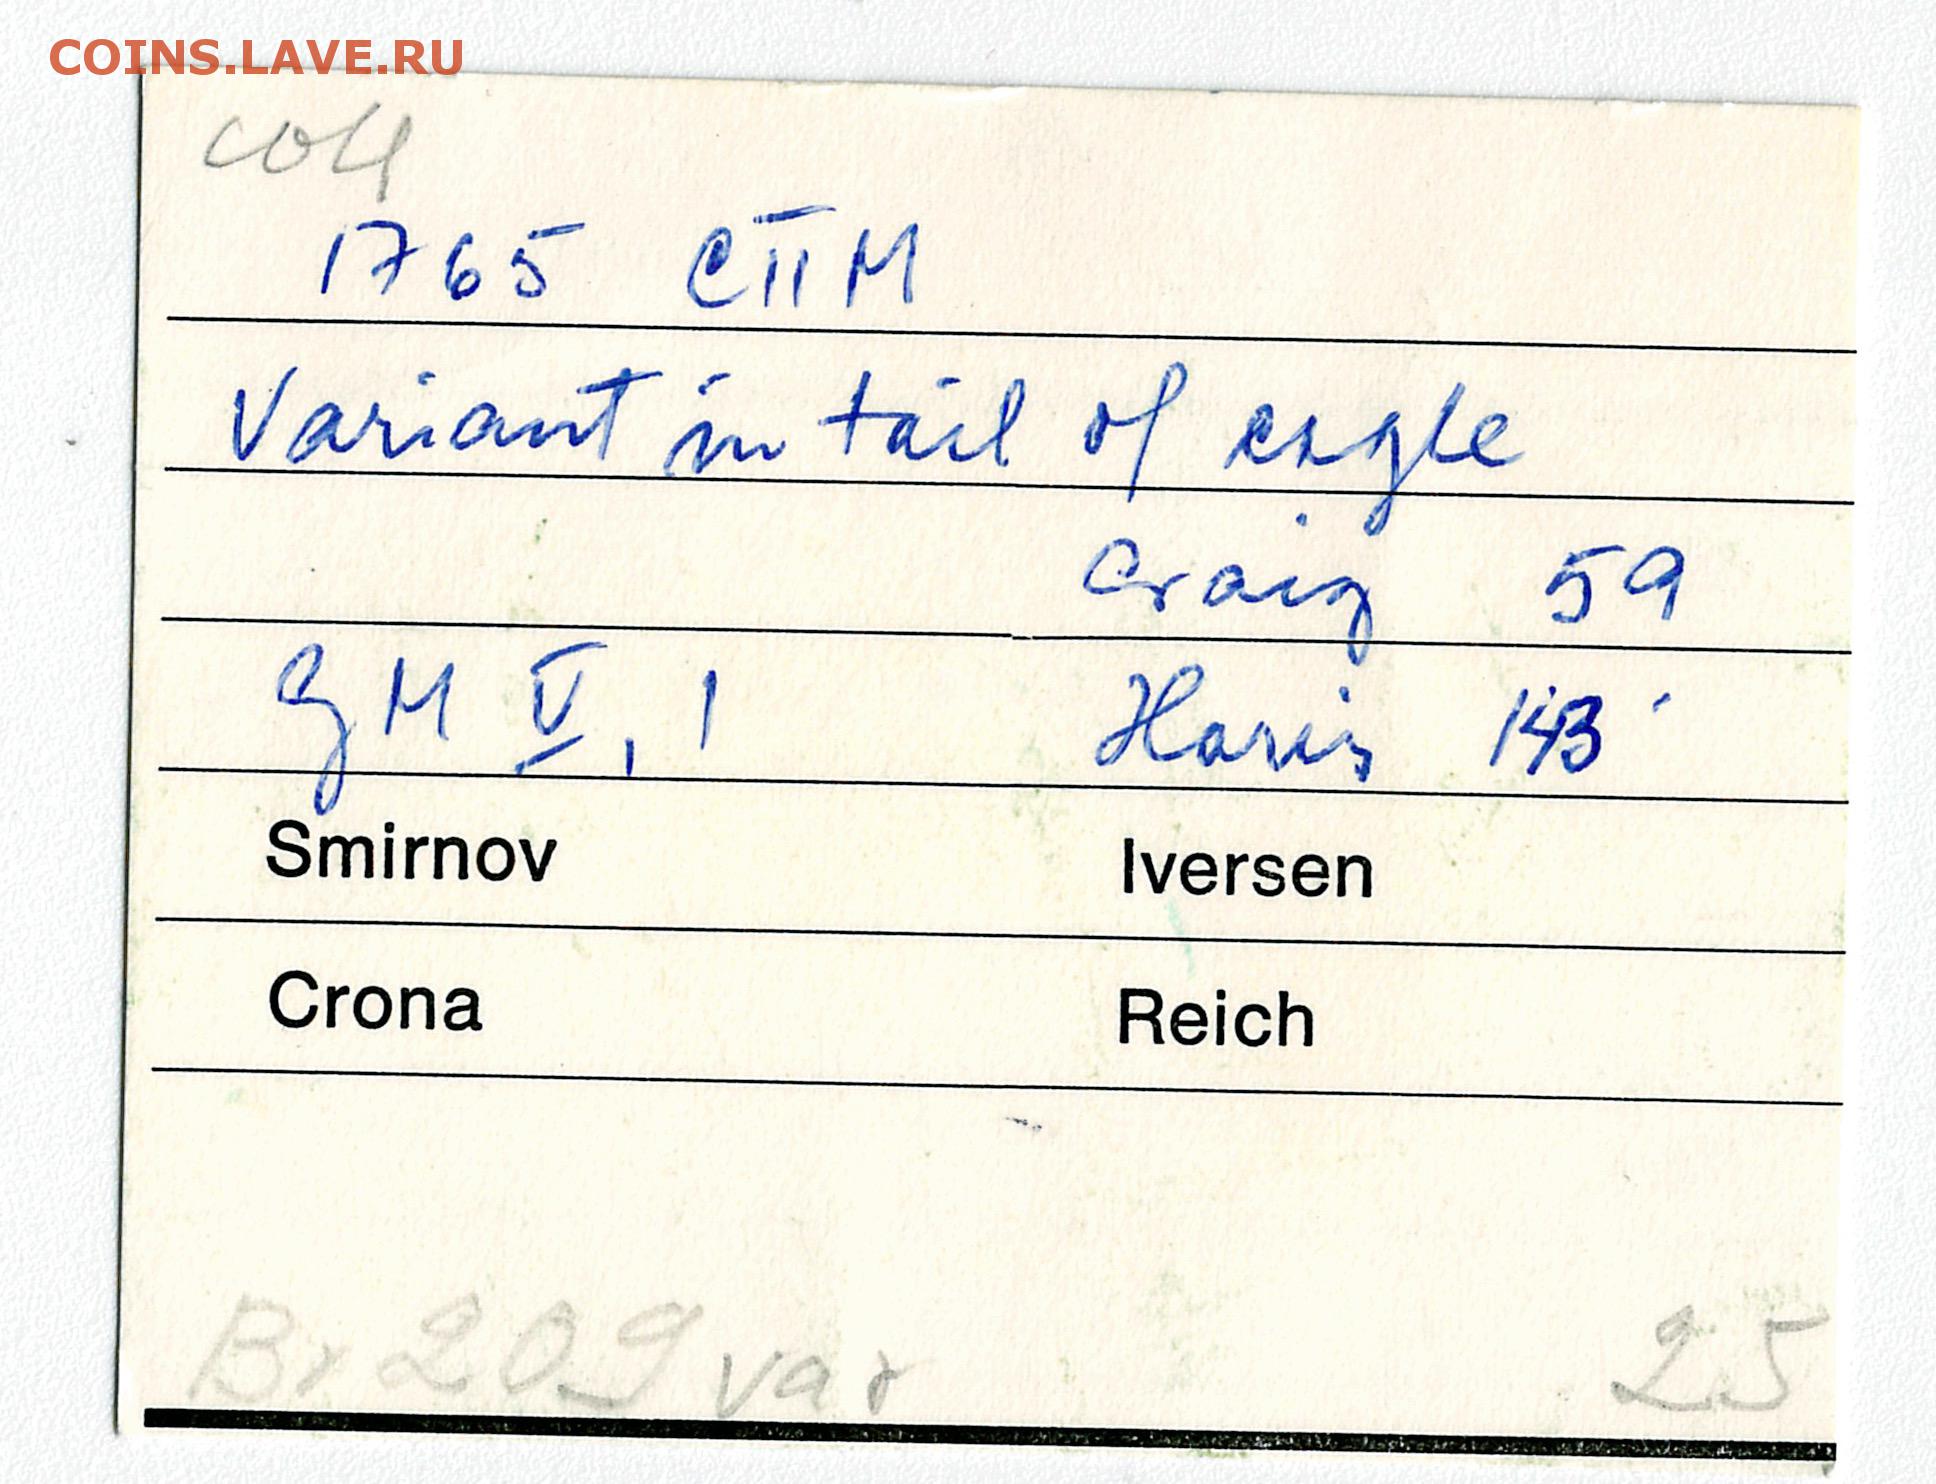 COINS.LAVE.RU
coll
1765 СПМ
Variant in tail of eagle
Craig 59
GM V, 1 Haris 143
Smirnov Iversen
Crona Reich
Br 209 var 25